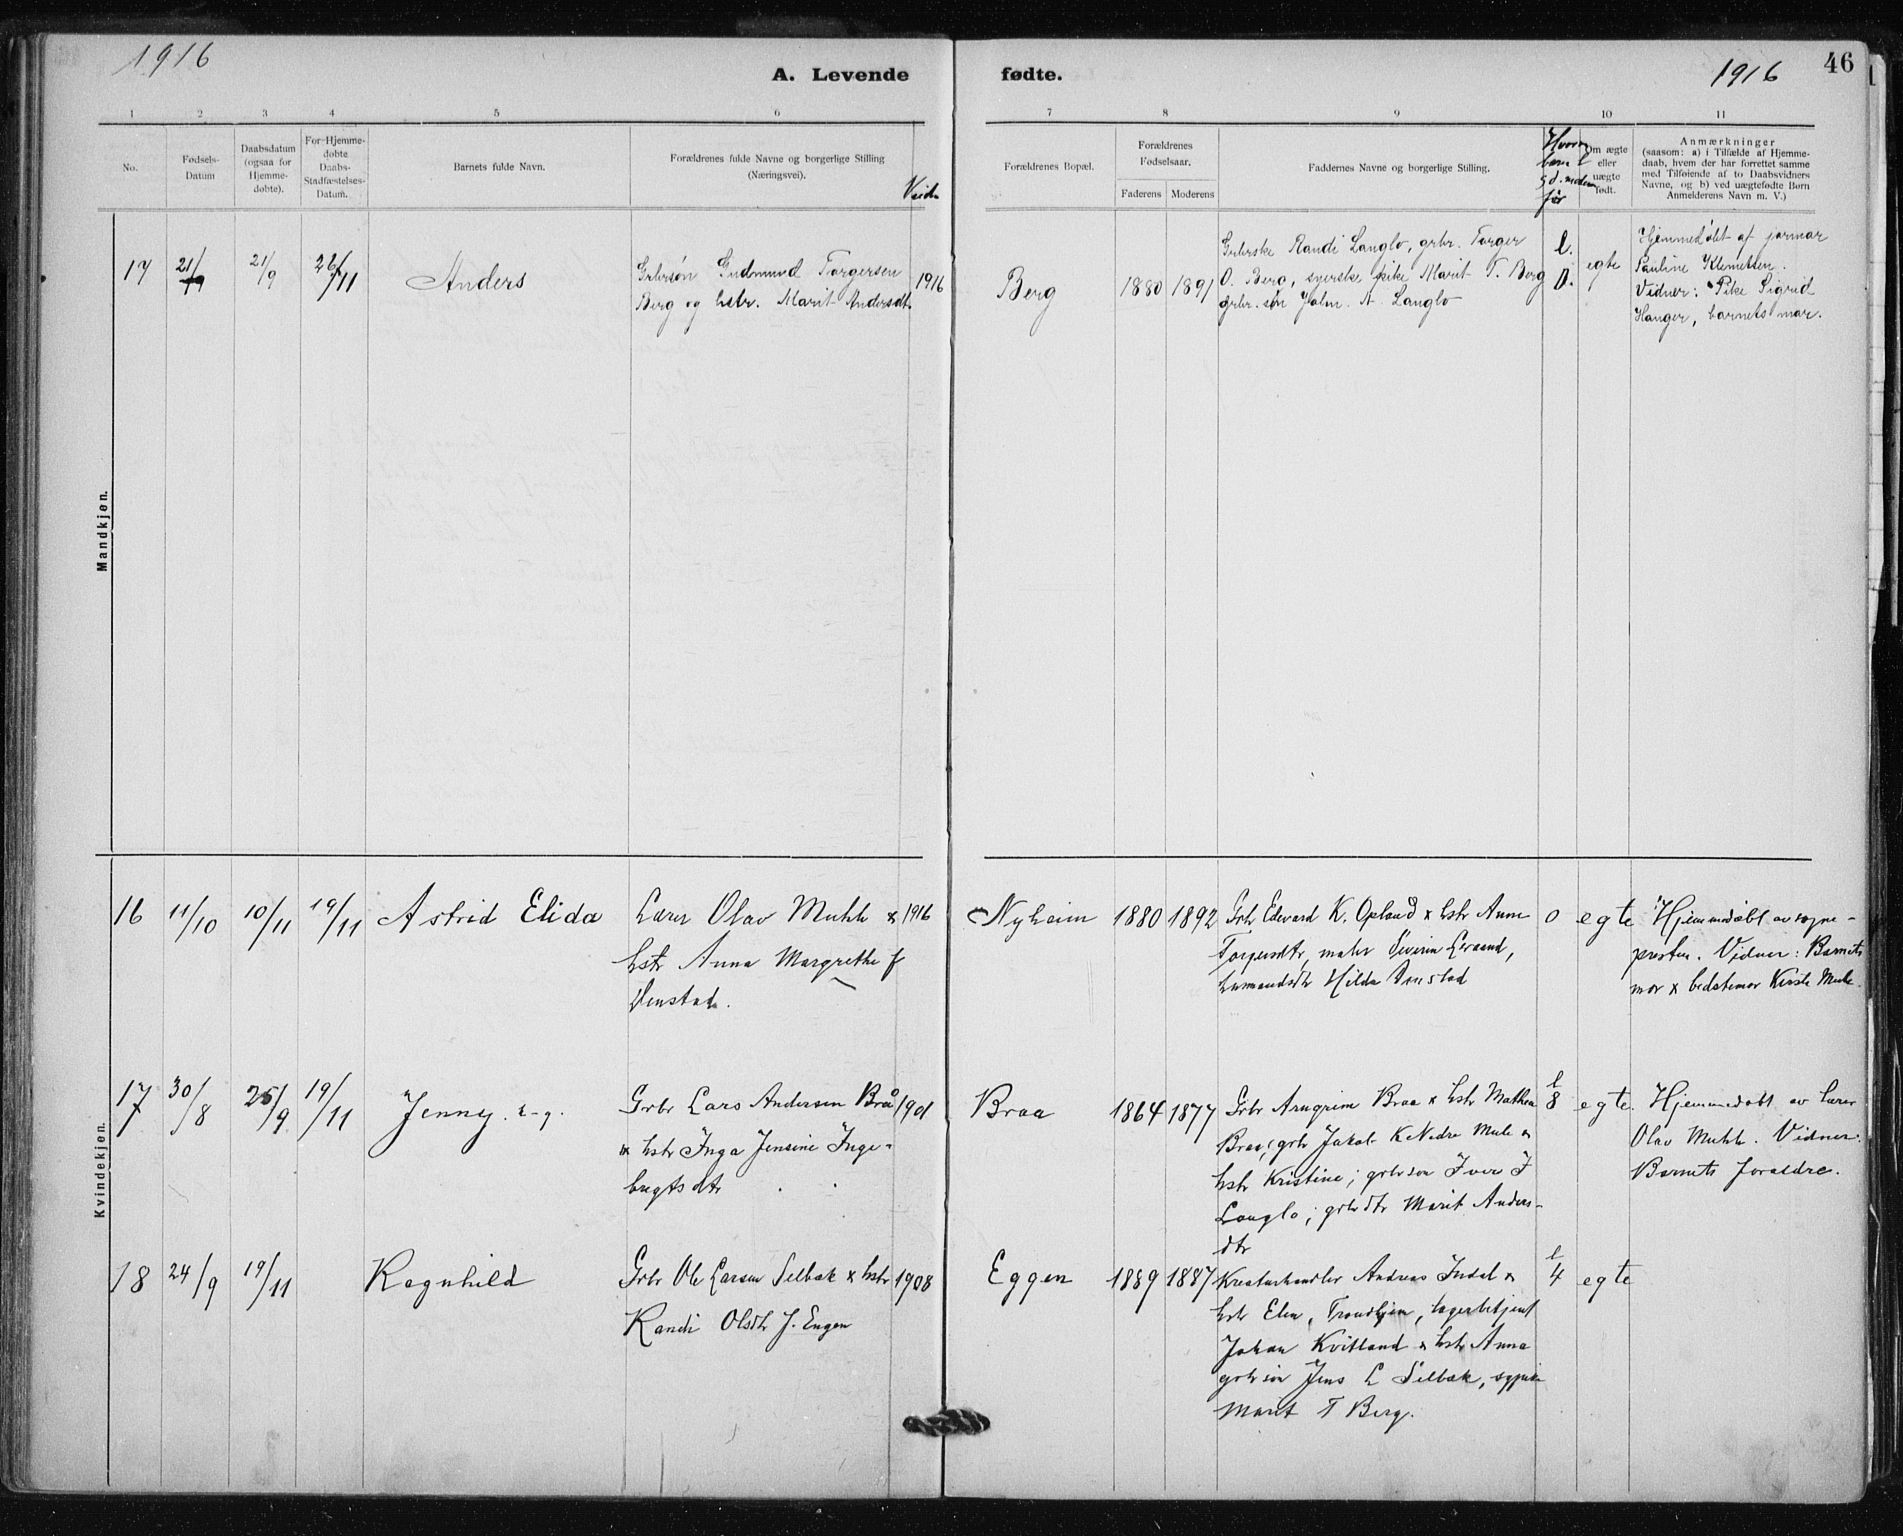 1916
A. Levende fødte.
1916
46
1 2 3 4 5 6 7 8 9 10 11
No.
Fødsels-
Datum
Daabsdatum
(ogsaa for
Hjemme-
døbte).
For Hjemme-
døbte
Daabs-
Stadfæstelses-
Datum.
Barnets fulde Navn.
Forældrenes fulde Navne og borgerlige Stilling
(Næringsvei).
Viede
Forældrenes Bopæl.
Forældrenes
Fødselsaar.
Faderens
Moderens
Faddernes Navne og borgerlige Stilling.
før
Om ægte
eller
uægte
født.
Anmærkninger
(saasom: a) i Tilfælde af Hjemme-
daab, hvem der har forrettet samme
med Tilføiende af to Daabsvidners
Navne, og b) ved uægtefødte Børn
Anmelderens Navn m. V.)
Mandkjøn.
17
21/9
21/9
26/11
Anders
Grbrsøn Gudmund Torgersen
Berg og hstr. Marit Andersdt.
1916
Berg
1880
1891
Grbrske Randi Langlo, grbr. Torger
O. Berg, syerske pike Marit T. Berg
grbr. søn Halm. A. Langlo
l.
0.
egte
Hjemmedøbt af jormor
Pauline Klemetsen.
Vidner: Pike Sigrid
Hanger, barnets mor.
Kvindekjøn.
16
11/10
10/11
19/11
Astrid Elida
Lærer Olav Muhle &
hstr Anna Margrethe f
Venstad.
1916
Nyheim
1880
1892
Grbr Edvard K. Opland & hstr Anne
Torgersdtr, maler Severin Leraand,
Hilda Venstad
0
egte
Hjemmedøbt av sogne-
presten. Vidner: Barnets
mor & bedstemor Kirsti Muhle.
17
30/8
25/9
19/11
Jenny
Grbr Lars Andersen Brå
& hstr Inga Jensine Inge-
brigtsdtr
1901
Braa
1864
1877
Grbr Arngrim Braa & hstr Mathea
Braa; grbr Jakob K Nedre Mule &
hstr Kristine; grbr søn Iver J
Langlo; grbrdtr Marit Anders-
dtr
l
8
egte
Hjemmedøbt av lærer
Olav Muhle. Vidner:
Barnets forældre.
18
24/9
19/11
Ragnhild
Grbr Ole Larsen Selbæk & hstr
Randi Olsdtr J. Engen
1908
Eggen
1889
1887
Kreaturhandler Andreas Indal &
hstr Elen, Trondhjem, lagerbetjent
Johan Kvitland & hstr Anna
grbrsøn Jens L Selbæk, sypike
Marit T Berg.
l
4
egte